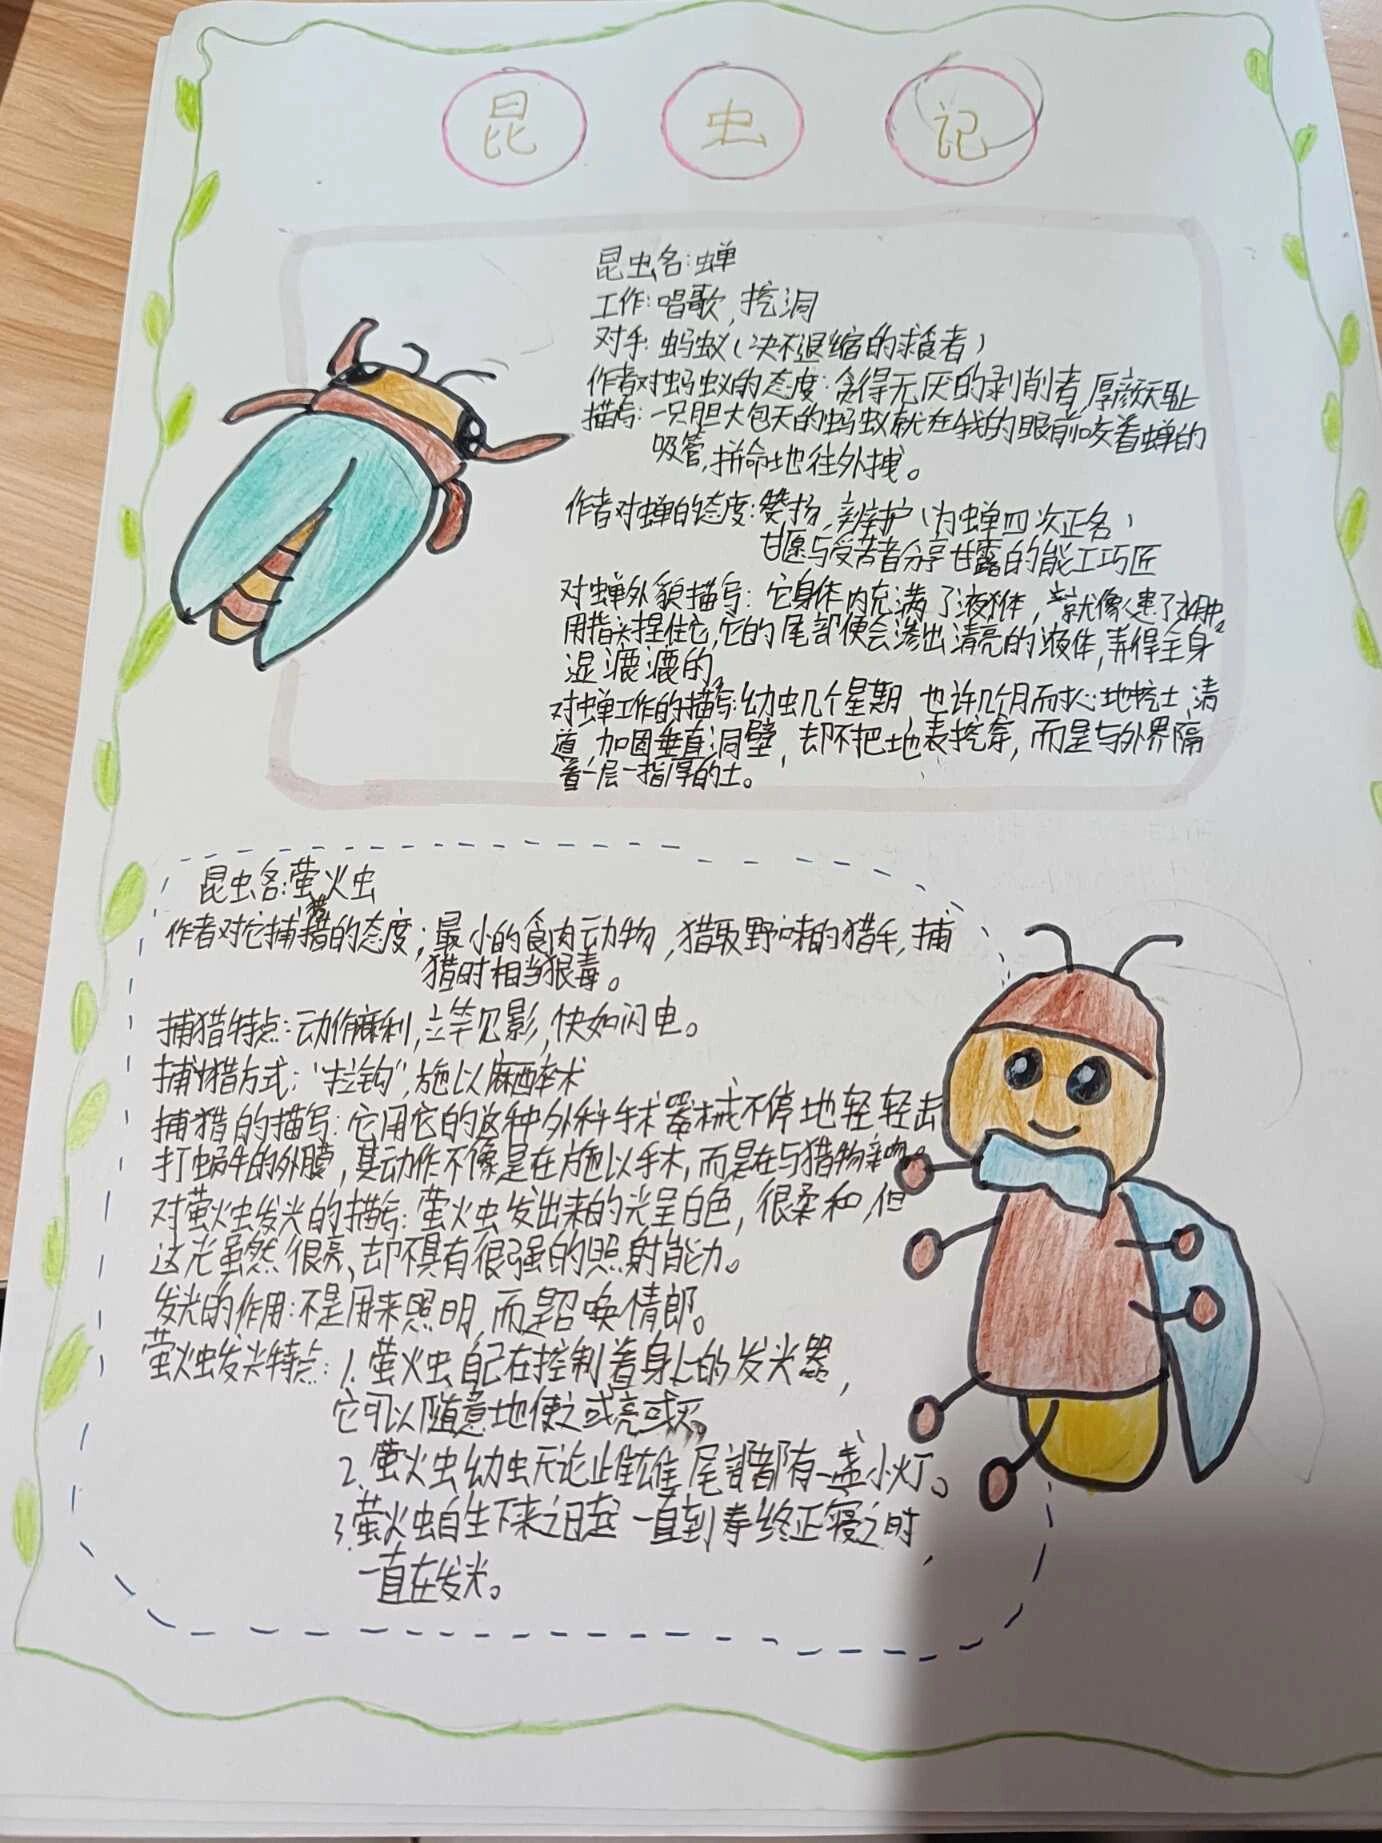 昆 虫 记
昆虫名:蝉
工作:唱歌,挖洞
对手:蚂蚁(决不退缩的求食者)
作者对蚂蚁的态度:贪得无厌的剥削者,厚颜无耻
描写:一只胆大包天的蚂蚁就在我的眼前咬着蝉的
吸管,拼命地往外拽。
作者对蝉的态度:赞扬,辩护(为蝉四次正名)
甘愿与受苦者分享甘露的能工巧匠
对蝉外貌描写:它身体内充满了液体,就像患了水肿。
用指头捏住它,它的尾部便会渗出清亮的液体,弄得全身
湿漉漉的。
对蝉工作的描写:幼虫几个星期 也许几个月而耐心地挖土,清
道,加固垂直洞壁,却不把地表挖穿,而是与外界隔
着一层一指厚的土。
昆虫名:萤火虫
作者对它捕猎的态度:最小的食肉动物,猎取野味的猎手,捕
猎时相当狠毒。
捕猎特点:动作麻利,立竿见影,快如闪电。
捕猎方式:“拦钩”,施以麻醉术
捕猎的描写:它用它的这种外科手术器械不停地轻轻击
打蜗牛的外膜,其动作不像是在施以手术,而是在与猎物亲吻。
对萤火虫发光的描写:萤火虫发出来的光呈白色,很柔和,但
这光虽然很亮、却不具有很强的照射能力。
发光的作用:不是用来照明,而是召唤情郎。
萤火虫发光特点:1.萤火虫自己在控制着身上的发光器,
它可以随意地使之或亮或灭。
2.萤火虫幼虫无论雌雄,尾部都有一盏小灯。
3.萤火虫自生下来之日起 一直到寿终正寝之时,
一直在发光。